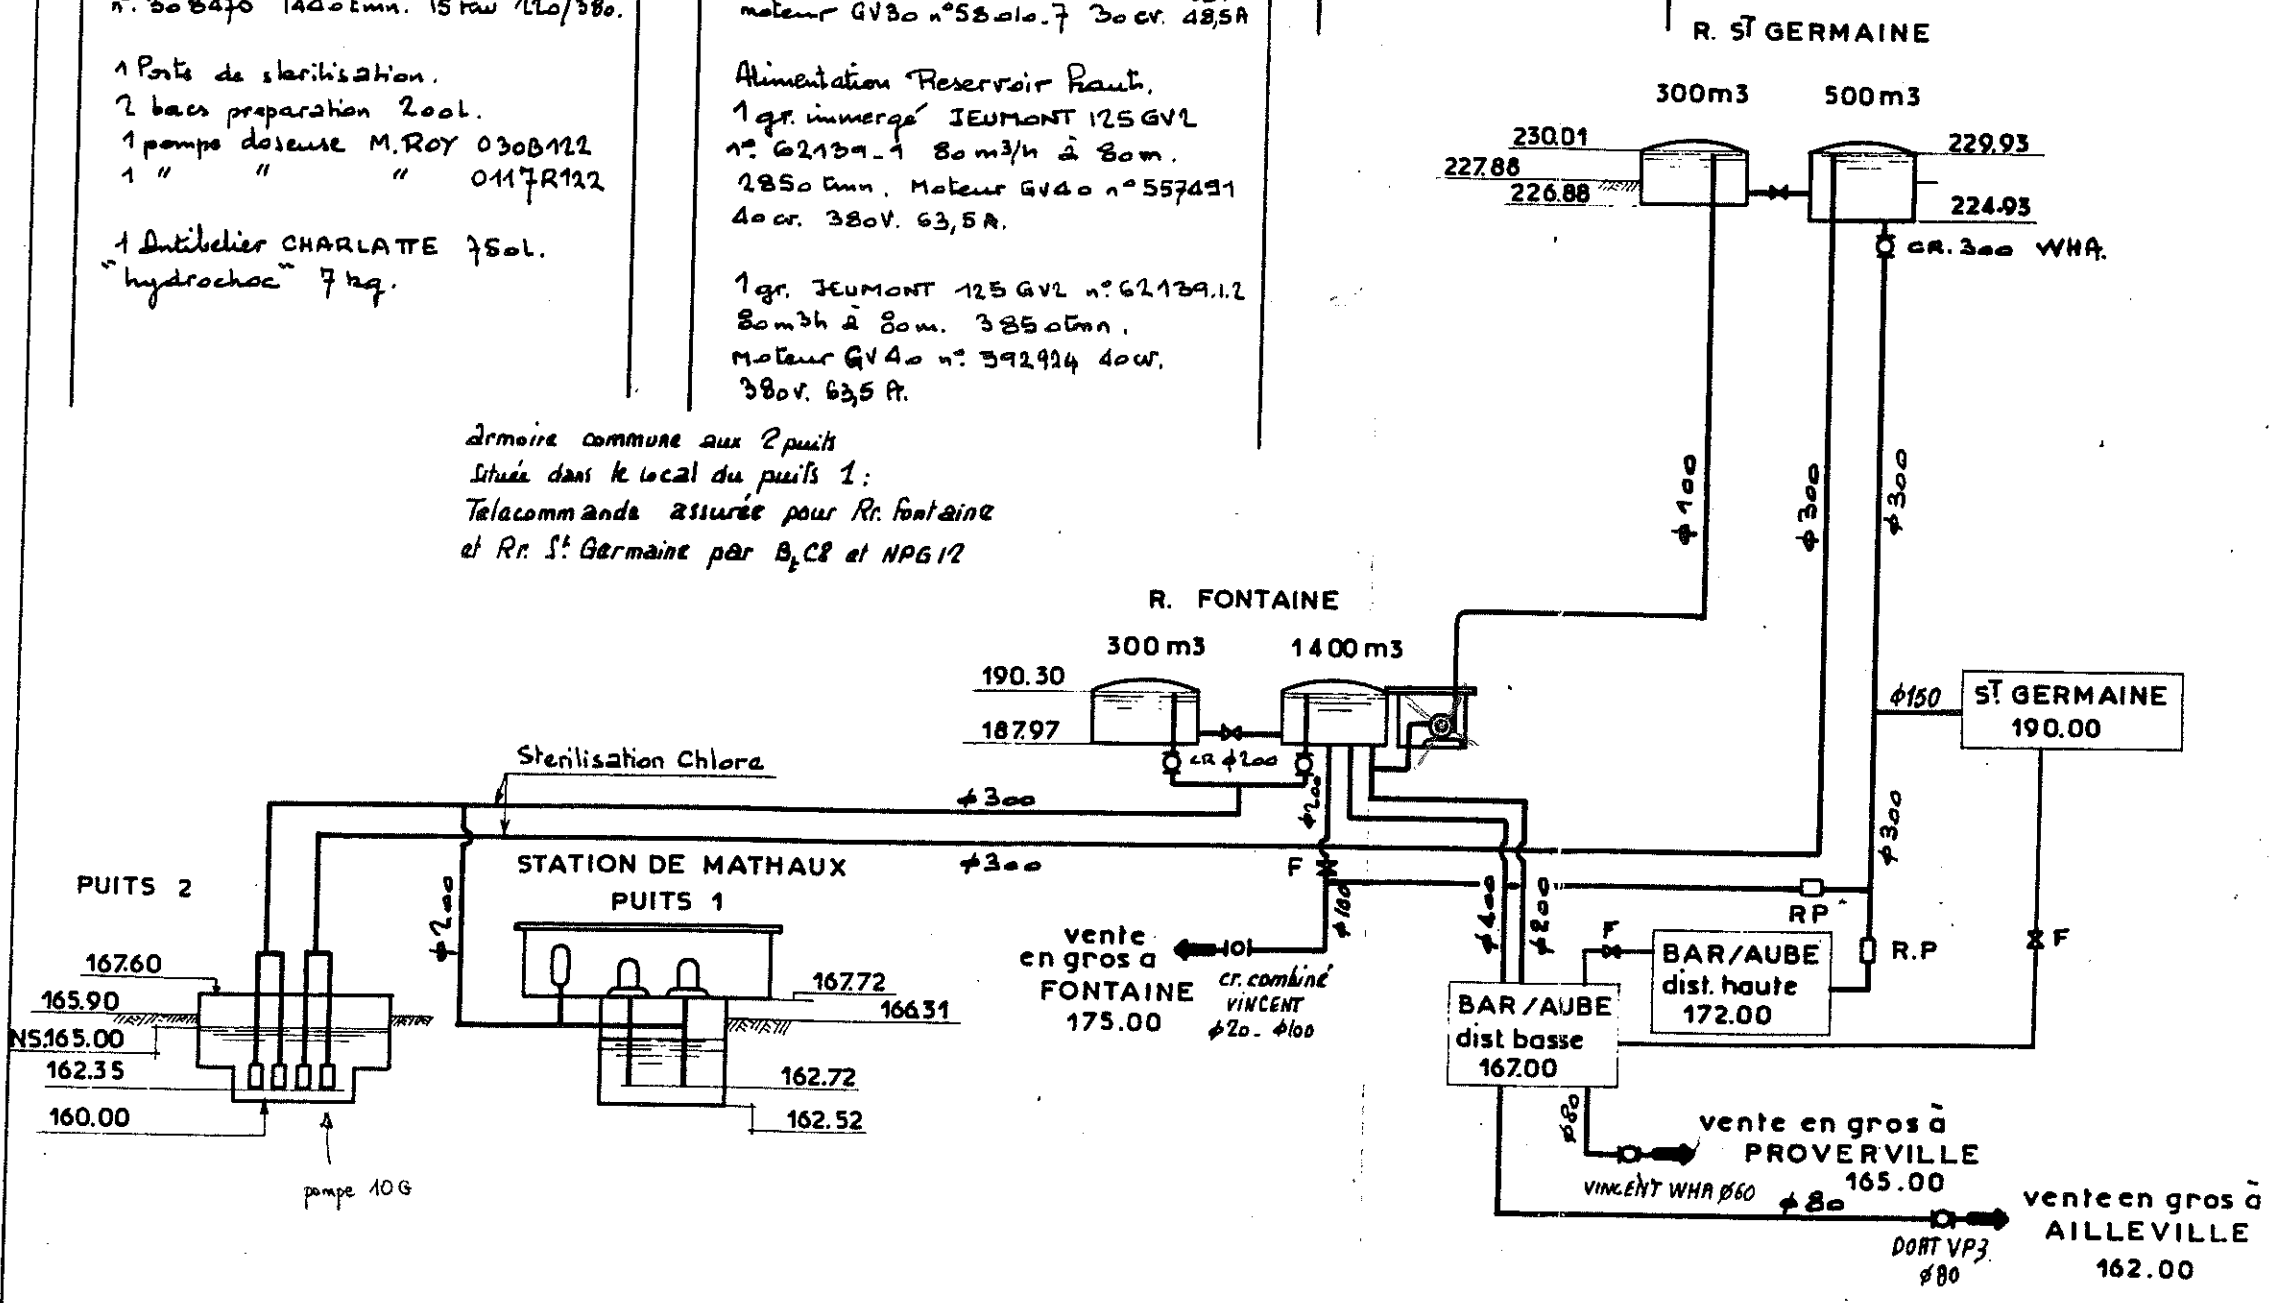 n°. 308470 1440 tmn. 15 kw 220/380.
1 Poste de sterilisation.
2 bacs preparation 200L.
1 pompe doseuse M.ROY 030B122
1 " " " 0117R122
1 Antibelier CHARLATTE 750L.
"hydrochoc" 7 kg.
moteur GV30 n°58010-7 30cv. 48,5A
Alimentation Reservoir haut.
1 gr. immergé JEUMONT 125 GV2
n°. 62139-1 80 m3/h à 80m.
2850 tmn. Moteur GV40 n°557491
40 cv. 380V. 63,5 A.
1 gr. JEUMONT 125 GV2 n°.62139.1.2
80m3h à 80m. 3850tmn.
Moteur GV40 n°. 392924 40cv.
380v. 63,5 A.
armoire commune aux 2 puits
Située dans le local du puits 1:
Telacommande assurée pour Rr. fontaine
et Rr. St Germaine par BtC8 et NPG12
R. ST GERMAINE
300m3 500m3
230.01
229.93
227.88
226.88
224.93
CR. 300 WHA.
φ100
φ300
φ300
R. FONTAINE
300m3 1400m3
190.30
187.97
CR φ200
φ200
φ150
ST GERMAINE
190.00
Sterilisation Chlore
φ300
φ300
φ300
STATION DE MATHAUX
PUITS 1
PUITS 2
φ200
167.60
165.90
NS.165.00
162.35
160.00
pompe 10G
167.72
166.31
162.72
162.52
F
φ100
vente
en gros a
FONTAINE
175.00
cr. combiné
VINCENT
φ20- φ100
φ200
RP
R.P
F
F
BAR/AUBE
dist. haute
172.00
BAR/AUBE
dist basse
167.00
φ80
vente en gros à
PROVERVILLE
165.00
VINCENT WHA φ60
φ80
vente en gros à
AILLEVILLE
162.00
DORT VP3.
φ80